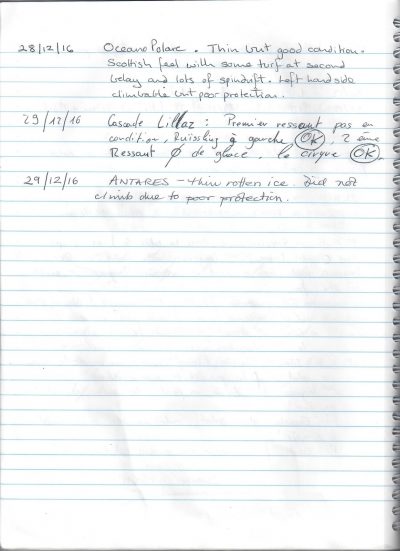 28/12/16 Oceano Polare. Thin but good condition.
Scottish feel with some turf at second
belay and lots of spindrift. Left hand side
climbable but poor protection.
29/12/16 Cascade Lillaz : Premier ressaut pas en
condition, Ruissling à gauche OK, 2 ème
Ressaut Ø de glace, le cirque OK.
29/12/16 ANTARES - thin rotten ice. Did not
climb due to poor protection.